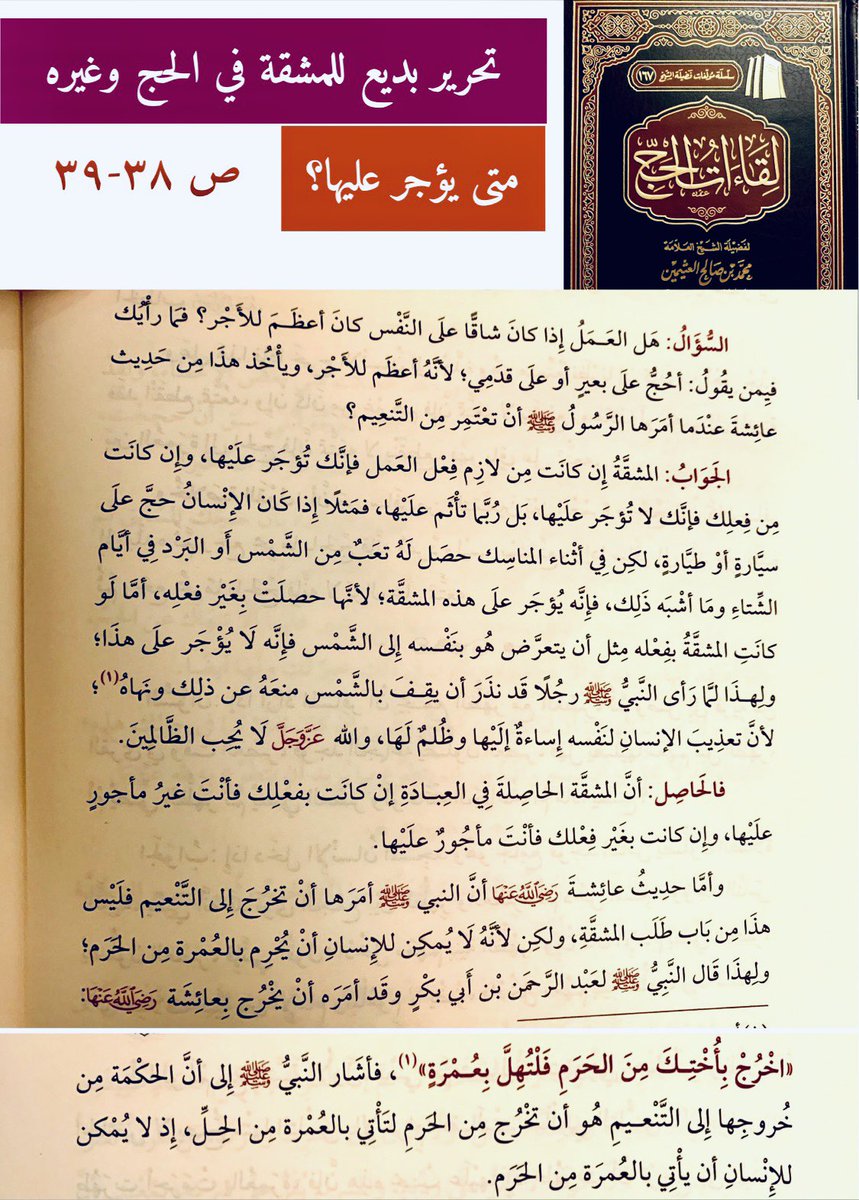 تحرير بديع للمشقة في الحج وغيره
متى يؤجر عليها؟
ص ٣٨-٣٩
سلسلة مؤلفات فضيلة الشيخ (١٦٧)
لقاءات الحج
لفضيلة الشيخ العلامة
محمد بن صالح العثيمين
السُّؤَالُ: هَل العَمَلُ إِذا كانَ شاقًّا علَى النَّفْس كانَ أعظَمَ للأَجْر؟ فمَا رأيُك
فيِمن يقُولُ: أحُجُّ علَى بعيرٍ أو علَى قدَمِي؛ لأنَّهُ أعظَم للأَجْر، ويأْخُذ هذَا مِن حَدِيث
عائِشةَ عنْدَما أمرَها الرَّسُولُ ﷺ أنْ تعْتَمِر مِن التَّنعِيم؟
الجَوَابُ: المشقَّةُ إِن كانَت مِن لازِم فِعْل العَمل فإنَّك تُؤجَر علَيْها، وإِن كانَت
مِن فِعلِك فإنَّك لا تُؤجَر علَيْها، بَل رُبَّما تأْثَم علَيْها، فمَثلًا إِذا كَان الإِنْسانُ حجَّ علَى
سيَّارةٍ أوْ طيَّارةٍ، لكِن فِي أثْناء المناسِك حصَل لَهُ تعَبٌ مِن الشَّمْس أَو البَرْد فِي أيَّام
الشِّتاءِ ومَا أشْبَه ذَلِك، فإنَّه يُؤجَر علَى هذه المشقَّة؛ لأنَّها حصلَتْ بِغَيْر فعْلِه، أمَّا لَو
كانَتِ المشقَّةُ بفِعْله مِثل أن يتعرَّض هُو بنَفْسه إلى الشَّمْس فإنَّه لَا يُؤْجَر علَى هذَا؛
ولِهذَا لمَّا رَأى النَّبيُّ ﷺ رجُلًا قد نذَرَ أن يقِفَ بالشَّمْس منعَهُ عن ذلِك ونَهاهُ(١)؛
لأنَّ تعذِيبَ الإنسانِ لنَفْسه إساءةٌ إليْها وظُلمٌ لَهَا، والله عَزَّوَجَلَّ لَا يُحِب الظَّالِمينَ.
فالحَاصِل: أنَّ المشقَّة الحاصِلةَ فِي العِبادَةِ إنْ كانَت بفعْلِك فأنْتَ غيرُ مأجورٍ
علَيْها، وإِن كانت بغَيْر فِعْلك فأنْتَ مأجُورٌ علَيْها.
وأمَّا حدِيثُ عائِشةَ رَضِيَ اللَّهُ عَنْهَا أنَّ النبي ﷺ أمَرَها أنْ تخرُجَ إِلى التَّنْعيم فلَيْس
هذَا مِن بَاب طَلَب المشقَّةِ، ولكِن لأنَّهُ لَا يُمكِن للإنسانِ أنْ يُحْرِم بالعُمْرة مِن الحَرَم؛
ولِهذَا قَال النَّبيُّ ﷺ لعَبْد الرَّحمَن بْن أبي بكْرٍ وقَد أمَرَه أنْ يخْرُج بِعائِشَة رَضِيَ اللَّهُ عَنْهَا:
«اخْرُجْ بِأُخْتِكَ مِنَ الحَرَمِ فَلْتُهِلَّ بِعُمْرَةٍ»(١)، فأشَار النَّبيُّ ﷺ إِلى أنَّ الحكْمَة مِن
خُروجِها إِلى التَّنْعيمِ هُو أن تخْرُج مِن الحَرمِ لتَأْتِي بالعُمْرة مِن الحِلِّ، إِذ لا يُمْكن
للإِنْسانِ أن يأْتِي بالعُمرَة مِن الحَرَم.